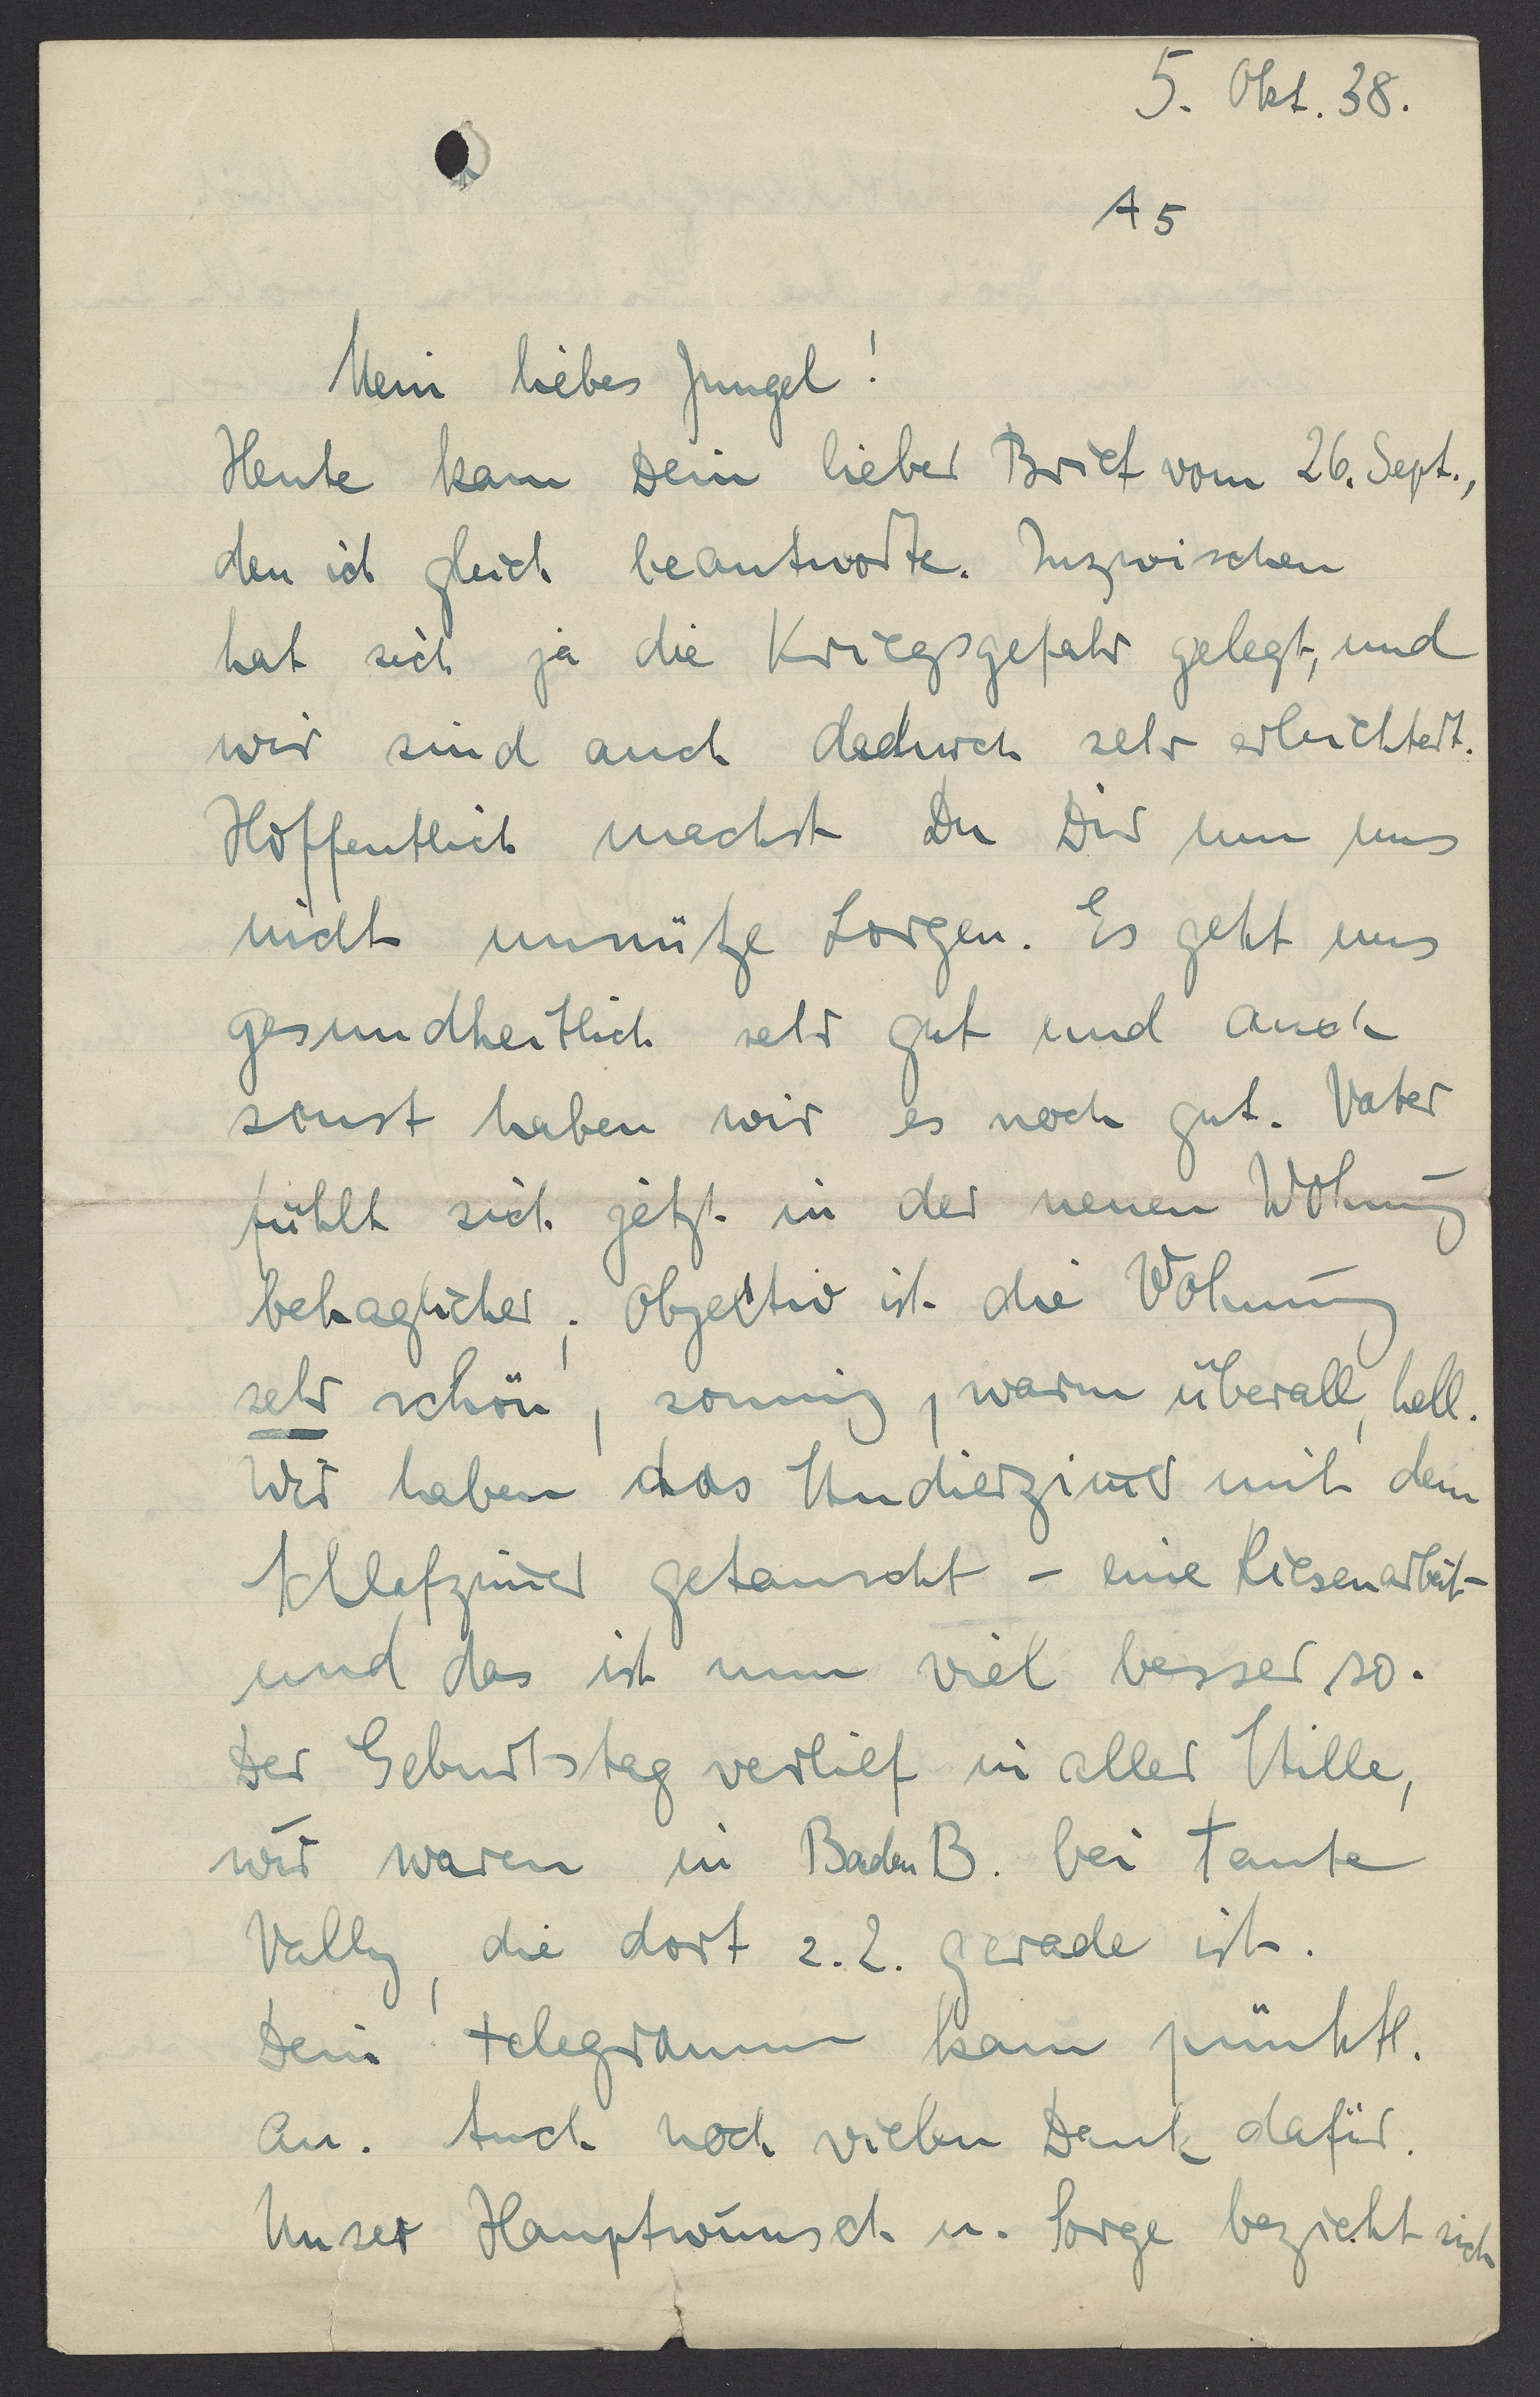 5. Okt. 38.
A5
Mein liebes Jungel!
Heute kam Dein lieber Brief vom 26. Sept.,
den ich gleich beantworte. Inzwischen
hat sich ja die Kriegsgefahr gelegt, und
wir sind auch dadurch sehr erleichtert.
Hoffentlich machst Du Dir um uns
nicht unnütze Sorgen. Es geht uns
gesundheitlich sehr gut und auch
sonst haben wir es noch gut. Vater
fühlt sich jetzt in der neuen Wohnung
behaglicher; objectiv ist die Wohnung
sehr schön, sonnig, warm überall, hell.
Wir haben das Studierzim̅er mit dem
Schlafzim̅er getauscht – eine Riesenarbeit –
und das ist nun viel besser so.
Der Geburtstag verlief in aller Stille,
wir waren in Baden B. bei Tante
Vally, die dort z. Z. gerade ist.
Dein Telegramm kam pünktl.
an. Auch noch vielen Dank dafür.
Unser Hauptwunsch u. Sorge bezieht sich